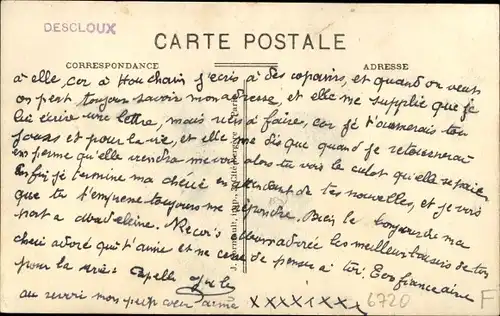 DESCLOUX
CARTE POSTALE
CORRESPONDANCE
ADRESSE
à elle, car à Houchain j'écris à des copains, et quand on veut
on peut toujours savoir mon adresse, et elle me supplie que je
lui écrive une lettre, mais rien à faire, car je t'aimerais tou
jours et pour la vie, et elle me dis que quand je retournerai
en perme qu'elle viendra me voir alors tu vois le culot qu'elle se paie
Enfin je termine ma chérie en attendant de tes nouvelles, et je vois
que tu t'empresse toujours me répondre. Bien le bonjour de ma
part a Madeleine. Reçois mon adorée les meilleurs baisers de ton
cheri adoré qui t'aime et ne cesse de penser à toi. Ton fiancé aimé
pour la vie.
au revoir mon petit cœur aimé
XXXXXXXX
6720
F